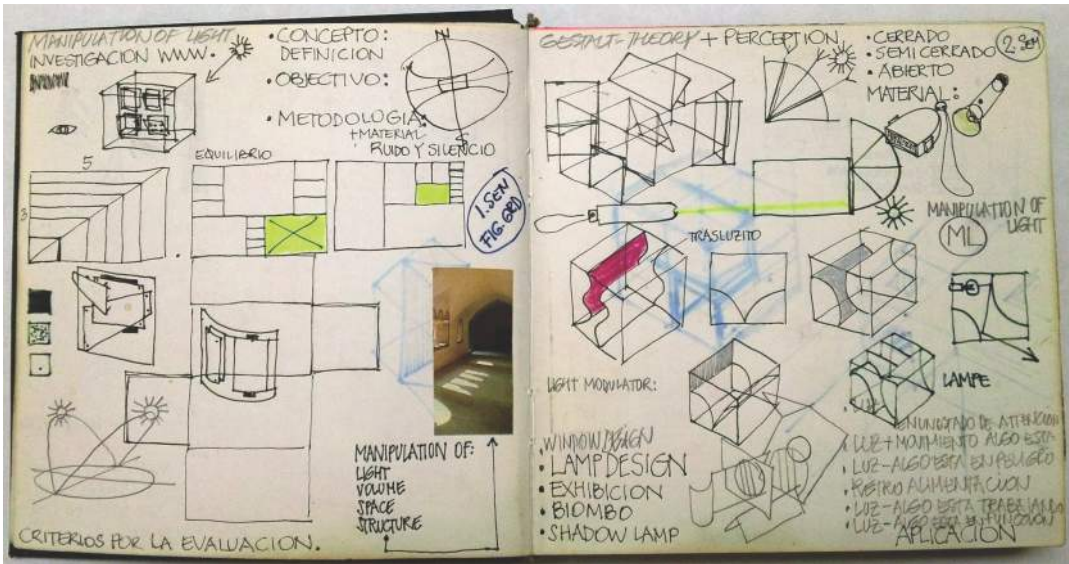 MANIPULATION OF LIGHT
INVESTIGACION WWW.
• CONCEPTO:
DEFINICION
• OBJECTIVO:
• METODOLOGIA:
+ MATERIAL
RUIDO Y SILENCIO
N
S
5
3
EQUILIBRIO
1. SEM
FIG. GRD
MANIPULATION OF:
LIGHT
VOLUME
SPACE
STRUCTURE
CRITERIOS POR LA EVALUACION.
GESTALT-THEORY + PERCEPTION
• CERRADO
• SEMICERRADO
• ABIERTO
MATERIAL:
2. SEM
MANIPULATION OF
LIGHT
ML
TRASLUZITO
LIGHT MODULATOR:
LAMPE
• WINDOW DESIGN
• LAMPDESIGN
• EXHIBICION
• BIOMBO
• SHADOW LAMP
DE ATTENCION
• LUZ + MOVIMIENTO ALGO ESTA
• LUZ - ALGO ESTA EN PELIGRO
• RETRO ALIMENTACION
• LUZ - ALGO ESTA TRABAJANDO
• LUZ - ALGO ESTA EN FUNCCION
APLICACION